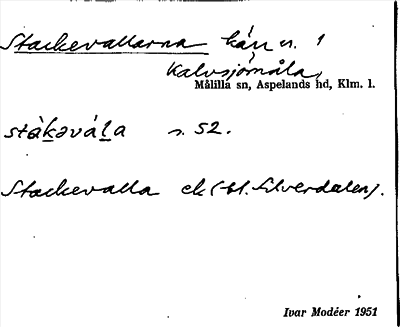 Stackevallarna kärr n. 1
Kalvsjömåla,
Målilla sn, Aspelands hd, Klm. l.
stákəvála s. 52.
Stackevalla ek (bl. Silverdalen).
Ivar Modéer 1951